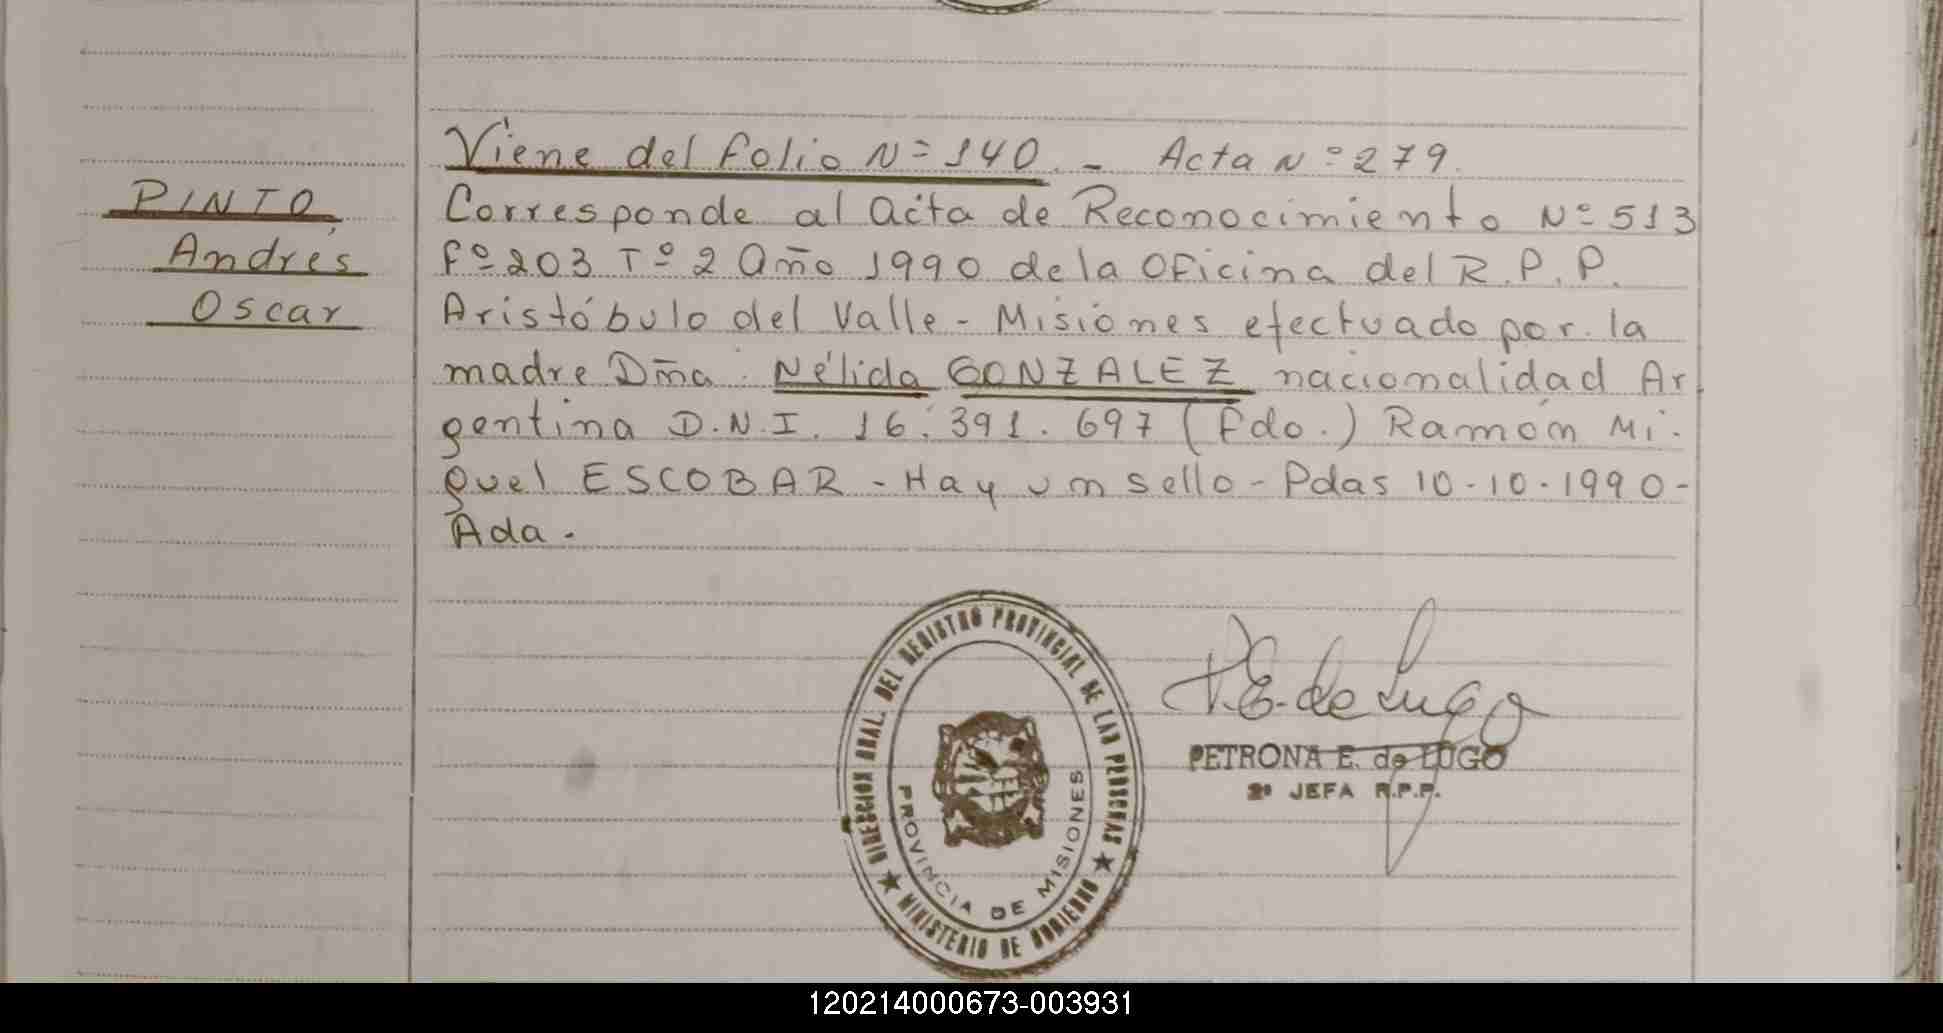 Viene del folio N= 140. - Acta N° 279.
PINTO,
Corresponde al acta de Reconocimiento Nº 513
Andrés
Fº 203 Tº 2 año 1990 de la Oficina del R.P.P.
Oscar
Aristóbulo del Valle - Misiones efectuado por la
madre Dña. Nélida GONZALEZ nacionalidad Ar
gentina D.N.I. 16.391.697 (Fdo.) Ramón Mi-
guel ESCOBAR - Hay un sello - Pdas 10-10-1990-
Ada.
DIRECCION GRAL. DEL REGISTRO PROVINCIAL DE LAS PERSONAS
★ MINISTERIO DE GOBIERNO ★
PROVINCIA DE MISIONES
P.E. de Lugo
PETRONA E. de LUGO
2º JEFA R.P.P.
120214000673-003931